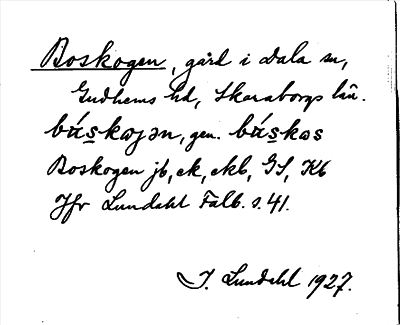 Boskogen, gård i Dala sn,
Gudhems hd, Skaraborgs län.
búskoȷən, gen. búskos
Boskogen jb, ek, ekb, GS, Kb
Jfr Lundahl Falb. s. 41.
I. Lundahl 1927.